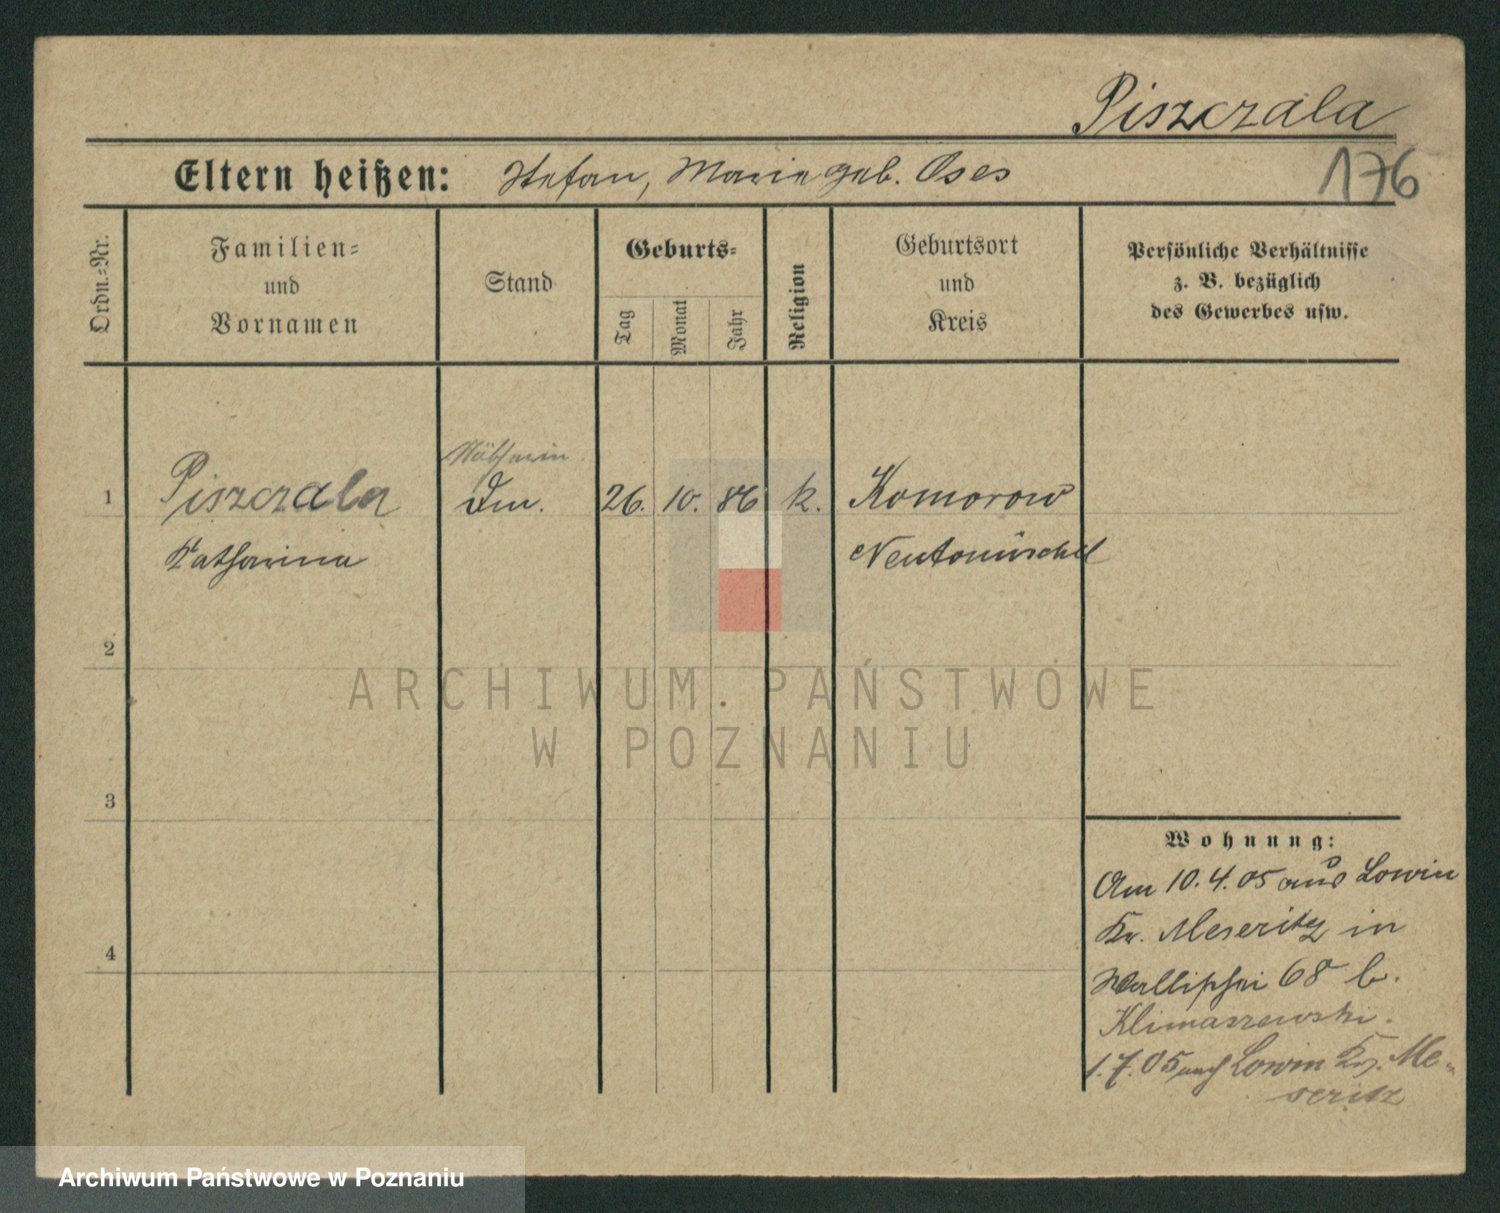 Piszczala
176
Eltern heißen: Stefan, Marie geb. Oses
Ordn.=Nr.
Familien=
und
Vornamen
Stand
Geburts=
Tag
Monat
Jahr
Religion
Geburtsort
und
Kreis
Persönliche Verhältnisse
z. B. bezüglich
des Gewerbes usw.
Nätherin
1 Piszczala 26. 10. 86 k. Komorowo
Katharina Neutomischel
2
3
4
Wohnung:
Am 10.4.05 aus Lowin
Kr. Meseritz in
Wallischei 68 b.
Klimaszewski.
1.7.05 nach Lowin Kr. Me=
seritz
ARCHIWUM PAŃSTWOWE
W POZNANIU
Archiwum Państwowe w Poznaniu